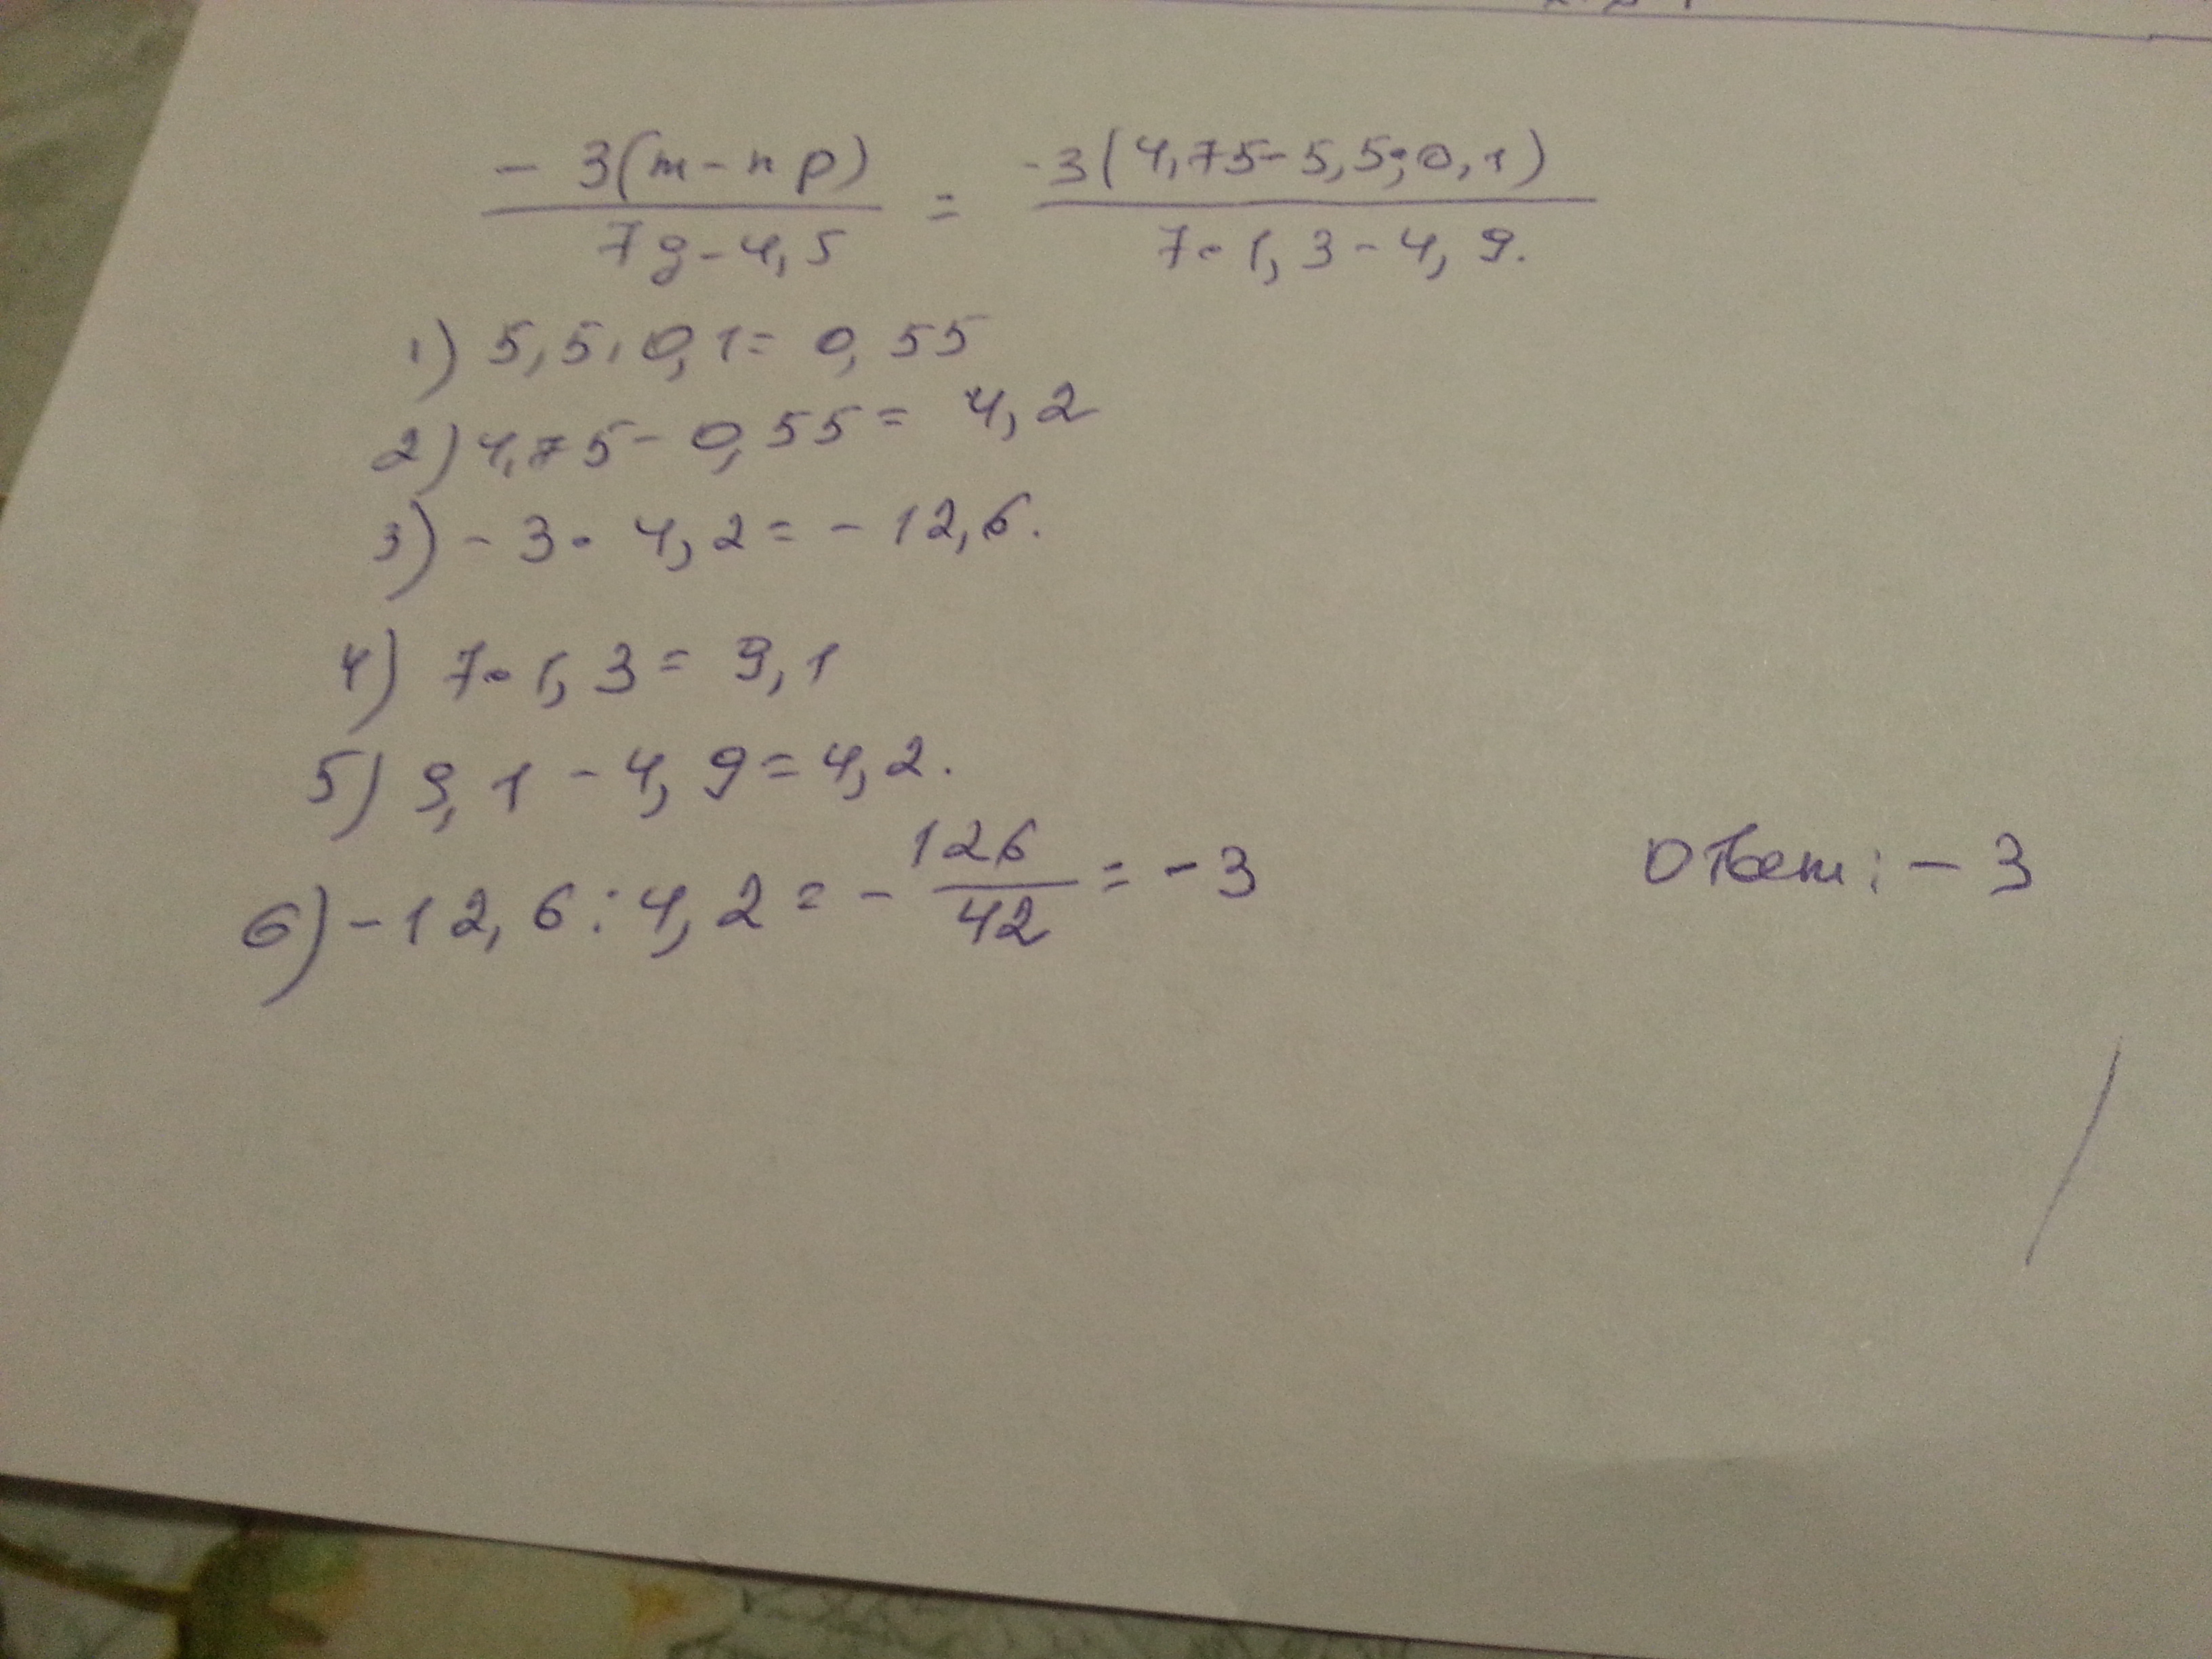 - 3(m - n p) / 7g - 4,5 = -3(4,75 - 5,5 · 0,1) / 7 · 1,3 - 4,9.
1) 5,5 · 0,1 = 0,55
2) 4,75 - 0,55 = 4,2
3) - 3 · 4,2 = - 12,6.
4) 7 · 1,3 = 9,1
5) 9,1 - 4,9 = 4,2.
6) - 12,6 : 4,2 = - 126/42 = - 3
Ответ: - 3